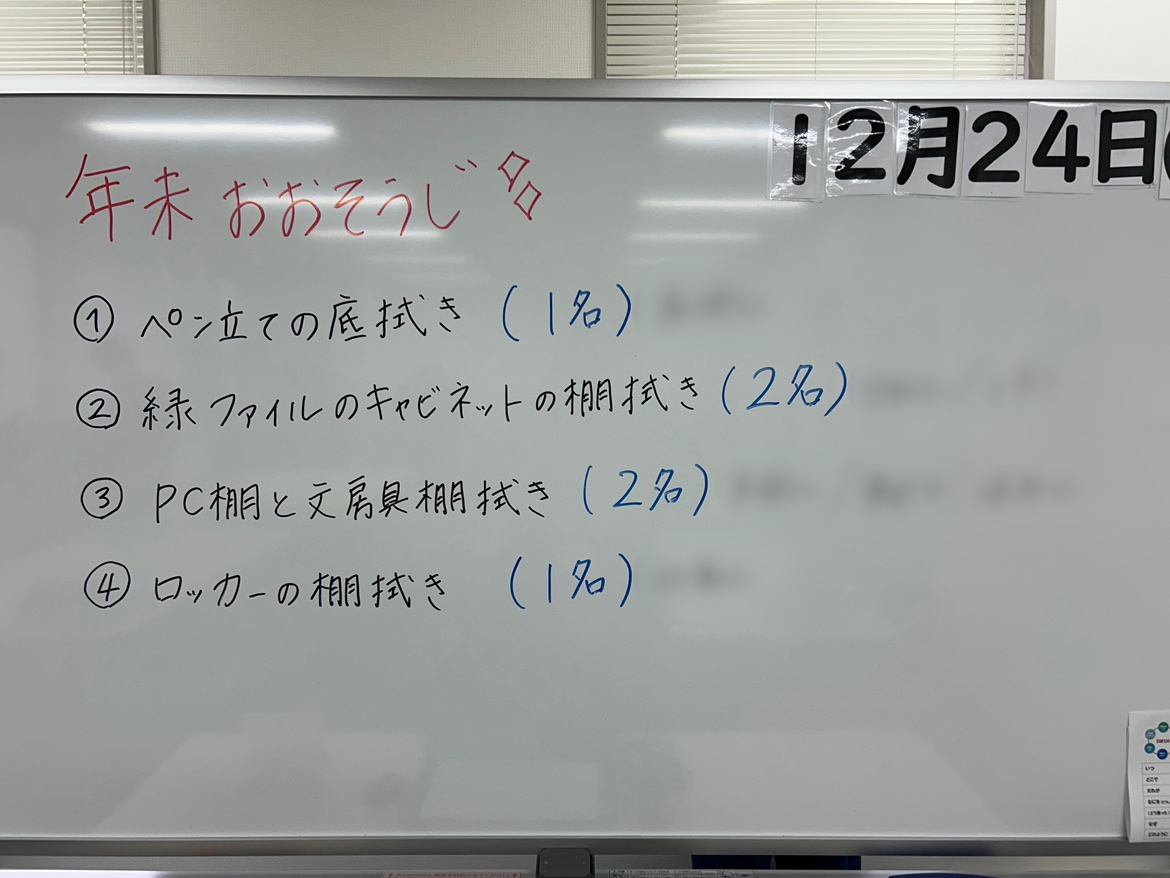 12月24日(
年末おおそうじ
① ペン立ての底拭き (1名)
② 緑ファイルのキャビネットの棚拭き (2名)
③ PC棚と文房具棚拭き (2名)
④ ロッカーの棚拭き (1名)
いつ
どこで
だれが
なぜ
どのように